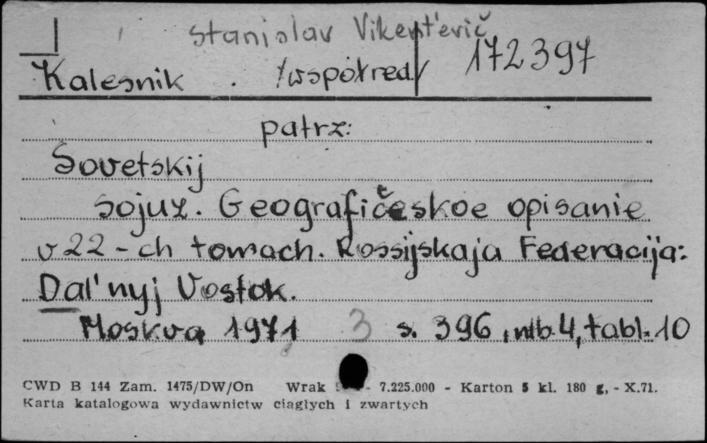 Stanislav Vikent'evič
Kalesnik . /współred/ 172397
patrz:
Sovetskij
Sojuz. Geografičeskoe opisanie
v 22-ch tomach. Rossijskaja Federacija:
Dal'nyj Vostok.
Moskva 1971 3 s. 396, nlb. 4, tabl. 10
CWD B 144 Zam. 1475/DW/On Wrak - 7.225.000 - Karton 5 kl. 180 g, - X.71.
Karta katalogowa wydawnictw ciągłych i zwartych